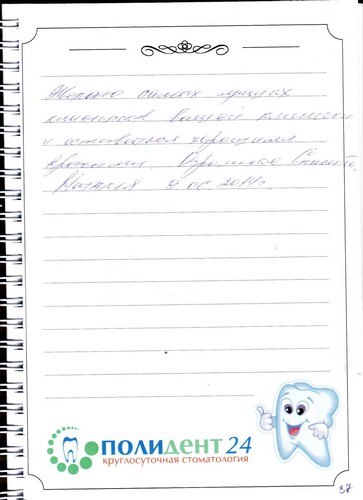 Желаю самых лучших
клиентов вашей клинике
и оставаться хорошими
врачами. Огромное Спасибо.
Наталия 2014г.
ПОЛИДЕНТ 24
круглосуточная стоматология
37